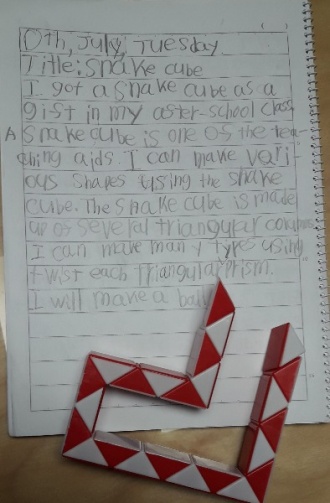 0th, July, Tuesday
Title: snake cube
I got a snake cube as a
gist in my aster-school class.
A snake cube is one of the tea-
ching aids. I can make vari-
ous shapes using the snake
cube. The snake cube is made
up of several triangular
I can make many types using
twist each triangular prism.
I will make a ball